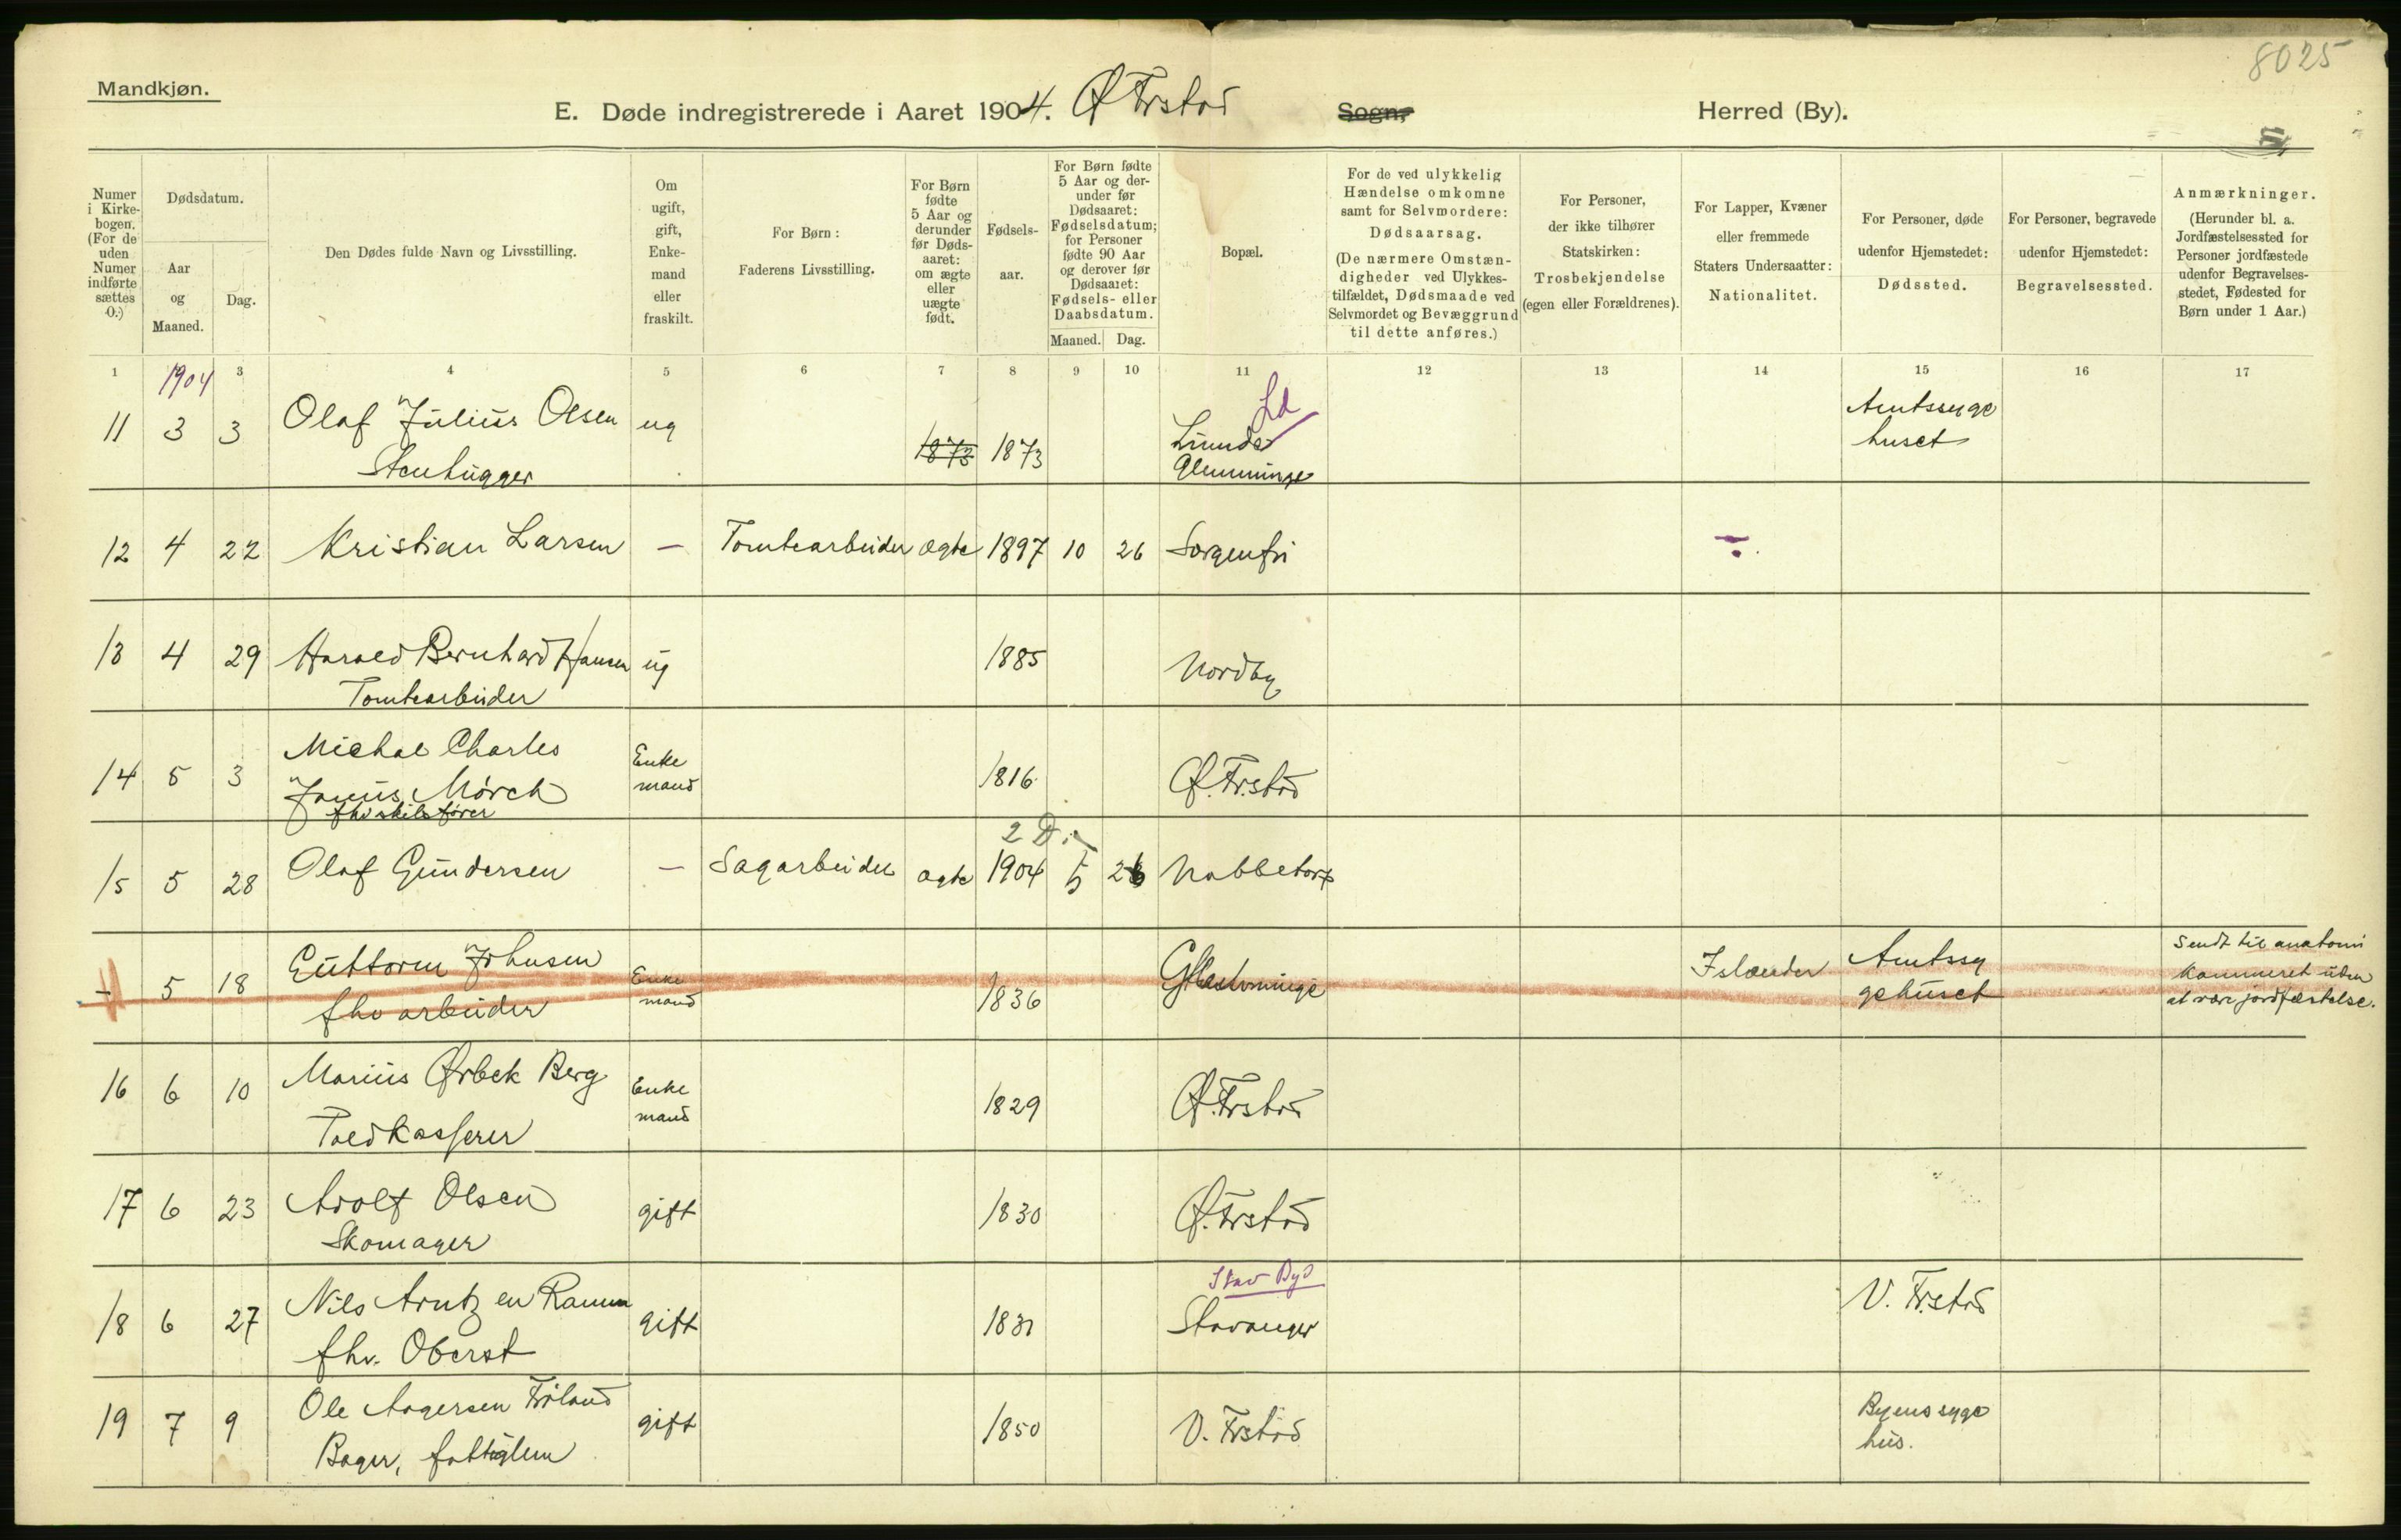 8025
Mandkjøn.
E. Døde indregistrerede i Aaret 1904. Ø Frstad Sogn, Herred (By).
Numer i Kirkebogen. (For de uden Numer indførte sættes 0.)
Dødsdatum.
Aar og Maaned.
Dag.
Den Dødes fulde Navn og Livsstilling.
Om ugift, gift, Enkemand eller fraskilt.
For Børn: Faderens Livsstilling.
For Børn fødte 5 Aar og derunder før Dødsaaret: om ægte eller uægte født.
Fødselsaar.
For Børn fødte 5 Aar og derunder før Dødsaaret: Fødselsdatum; for Personer fødte 90 Aar og derover før Dødsaaret: Fødsels- eller Daabsdatum.
Maaned. Dag.
Bopæl.
For de ved ulykkelig Hændelse omkomne samt for Selvmordere: Dødsaarsag. (De nærmere Omstændigheder ved Ulykkestilfældet, Dødsmaade ved Selvmordet og Bevæggrund til dette anføres.)
For Personer, der ikke tilhører Statskirken: Trosbekjendelse (egen eller Forældrenes).
For Lapper, Kvæner eller fremmede Staters Undersaatter: Nationalitet.
For Personer, døde udenfor Hjemstedet: Dødssted.
For Personer, begravede udenfor Hjemstedet: Begravelsessted.
Anmærkninger. (Herunder bl. a. Jordfæstelsessted for Personer jordfæstede udenfor Begravelsesstedet, Fødested for Børn under 1 Aar.)
1 3 4 5 6 7 8 9 10 11 12 13 14 15 16 17
1904
11 3 3 Olaf Julius Olsen ug 1873 1873 Lunde Ld Amtssyge
Stenhugger Glemminge huset
12 4 22 Kristian Larsen — Tomtearbeider ægte 1897 10 26 Sorgenfri
13 4 29 Harald Bernhard Hansen ug 1885 Nordby
Tomtearbeider
14 5 3 Michal Charles Enke 1816 Ø. Frstad
Janus Mørch mand
fhv skibsfører
2 D.
15 5 28 Olaf Gundersen — Sagarbeider ægte 1904 5 26 Nabbetorp
— 5 18 Guttorm Johnsen Enke 1836 Glemminge Islænder Amtssy Sendt til anatomi
fhv arbeider mand gehuset kammeret uden
at være jordfæstelse.
16 6 10 Marius Ørbek Berg Enke 1829 Ø. Frstad
Toldkasserer mand
17 6 23 Adolf Olsen gift 1830 Ø. Frstad
Skomager
Stav By
18 6 27 Nils Arntzen Ramm gift 1831 Stavanger V. Frstad
fhv. Oberst
19 7 9 Ole Aagersen Friland gift 1850 V. Frstad Byens syge
Bager, fattiglem hus.